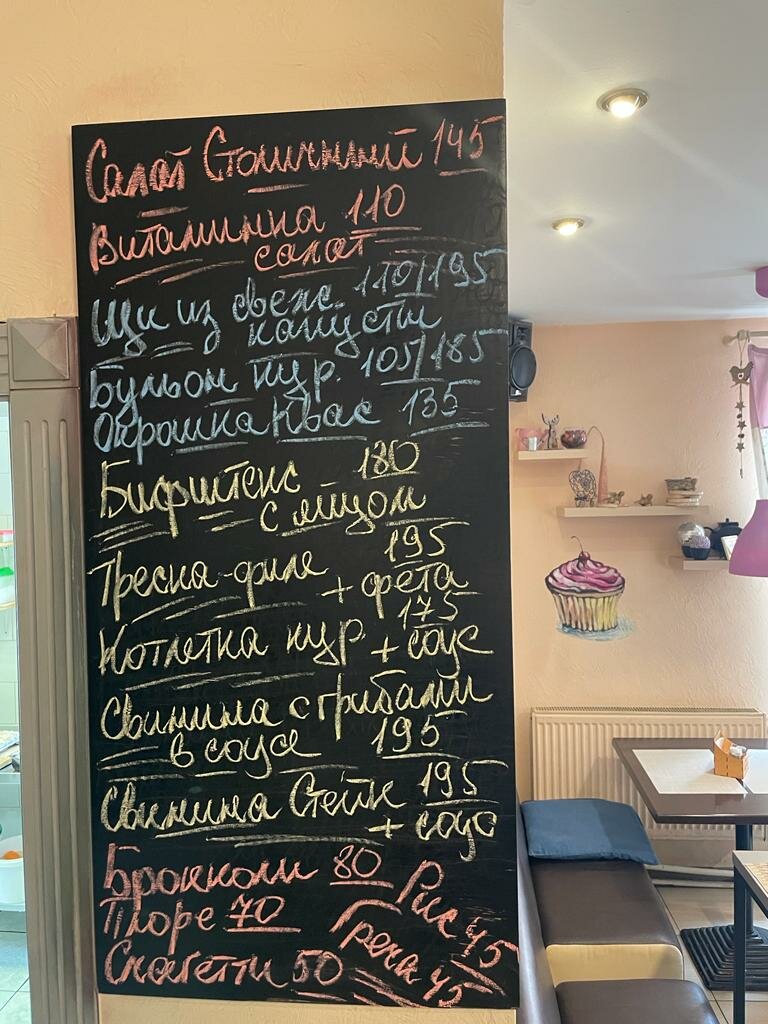 Салат Столичный 145
Витаминка 110
салат
Щи из свеж. 110/195
капусты
Бульон кур. 105/185
Окрошка Квас 135
Бифштекс 180
с яйцом
Треска-филе 195
+ фета
Котлетка кур 175
+ соус
Свинина с грибами
в соусе 195
Свинина Стейк 195
+ соус
Брокколи 80
Пюре 70
Спагетти 50
Рис 45
Греча 45